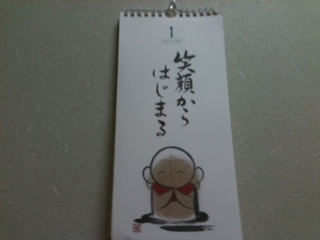 1
笑顔から
はじまる